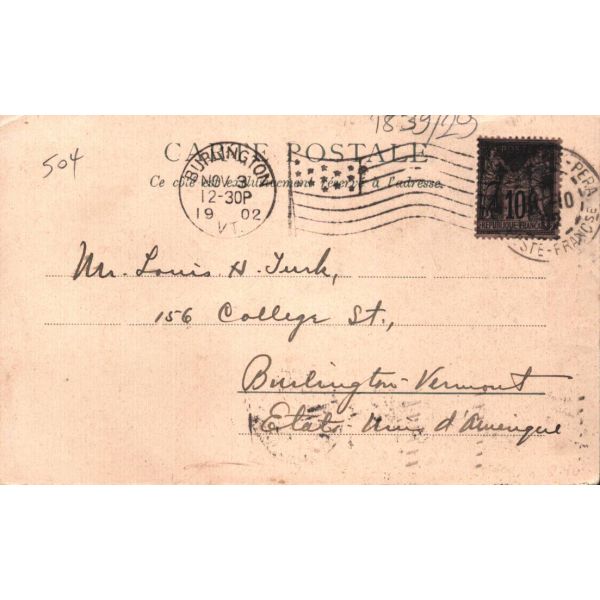 1839/29
504
CARTE POSTALE
Ce côté est exclusivement réservé à l'adresse.
BURLINGTON
NOV 3
12-30P
1902
VT.
10
REPUBLIQUE FRANCAISE
PERA
POSTE-FRANCSE
Mr. Louis H. Turk,
156 College St.,
Burlington-Vermont
États-Unis d'Amérique